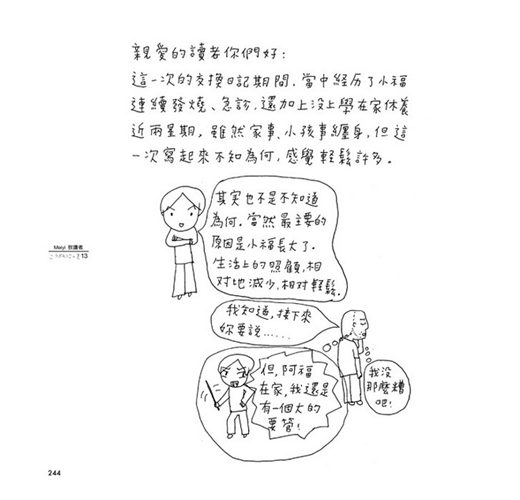 親愛的讀者你們好：
這一次的交換日記期間，當中經历了小福
連續發燒、急診，還加上沒上學在家休養
近兩星期，雖然家事、小孩事纏身，但這
一次寫起來不知為何，感覺輕鬆許多。
其实也不是不知道
為何。當然最主要的
原因是小福長大了。
生活上的照顧，相
對地減少，相對輕鬆。
Maiyi 致讀者
13
我知道，接下來
妳要說……
但，阿福
在家，我還是
有一個大的
要管！
我沒
那麼糟
吧！
244